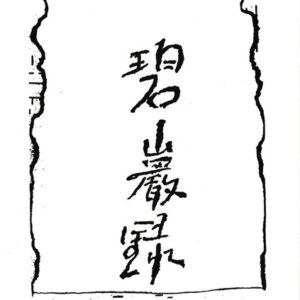 碧巖錄